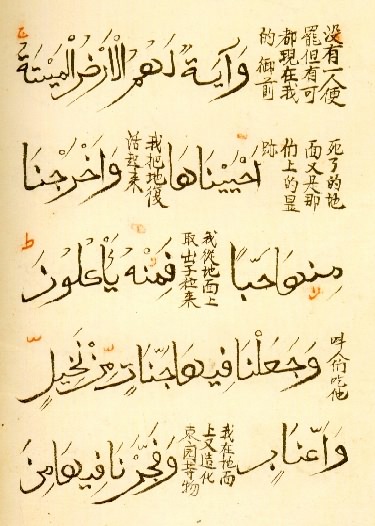 没有一人便
罷但有可
都現在我
的御前
وَآيَةٌ لَهُمُ الْأَرْضُ الْمَيْتَةُ
死了的地
面又是那
上的显
跡
أَحْيَيْنَاهَا
我把地復
活起來
وَأَخْرَجْنَا
مِنْهَا حَبًّا
我從地面上
取出子粒來
فَمِنْهُ يَأْكُلُونَ
吃他
وَجَعَلْنَا فِيهَا جَنَّاتٍ مِنْ نَخِيلٍ
وَأَعْنَابٍ
我在地面
上又造化
棗園等物
وَفَجَّرْنَا فِيهَا مِنَ